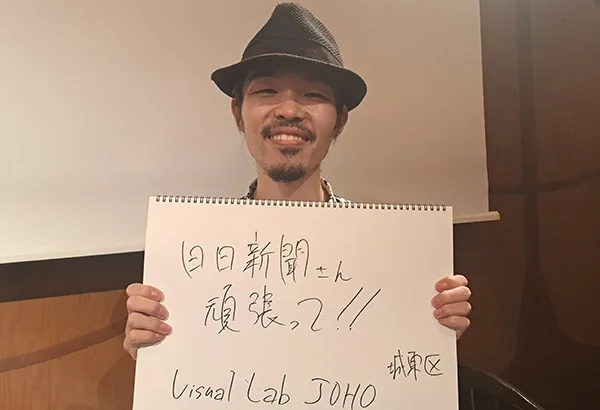 日日新聞さん
頑張って!!
城東区
Visual Lab JOHO